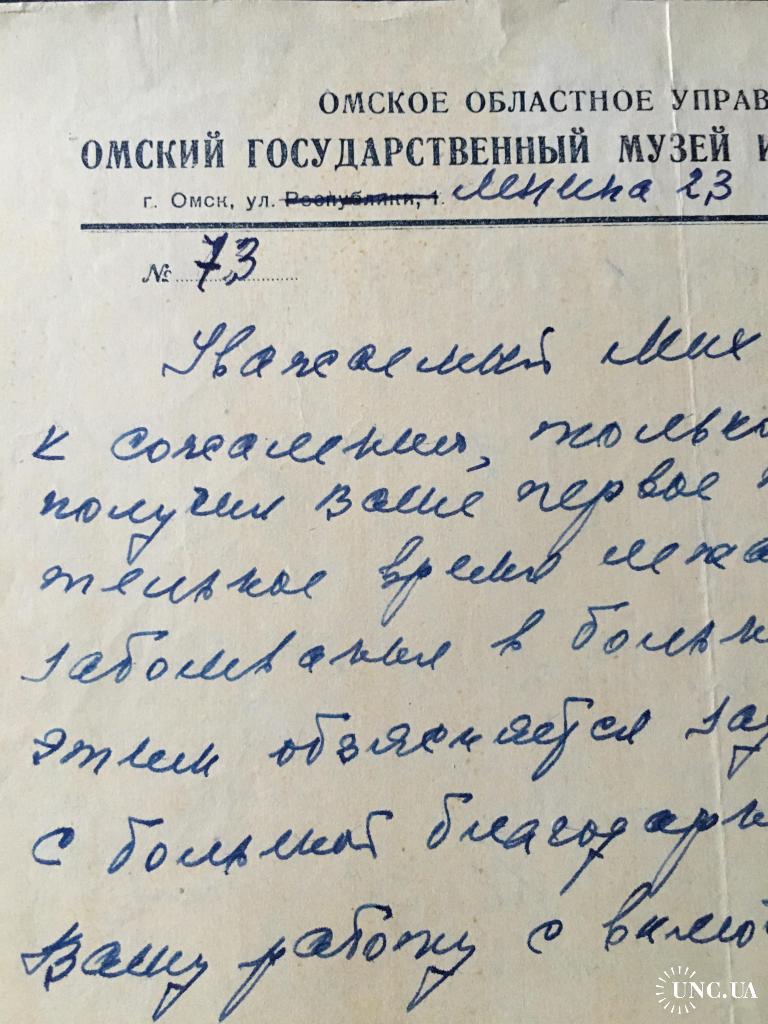 ОМСКОЕ ОБЛАСТНОЕ УПРАВ
ОМСКИЙ ГОСУДАРСТВЕННЫЙ МУЗЕЙ И
г. Омск, ул. Республики, 1. Ленина 23
№ 73
Уважаемый Мих
к сожалению, только
получил Ваше первое
тельное время лежа
заболевания в больн
этим объясняется зад
с большой благодарн
Вашу работу с вкло
UNC.UA